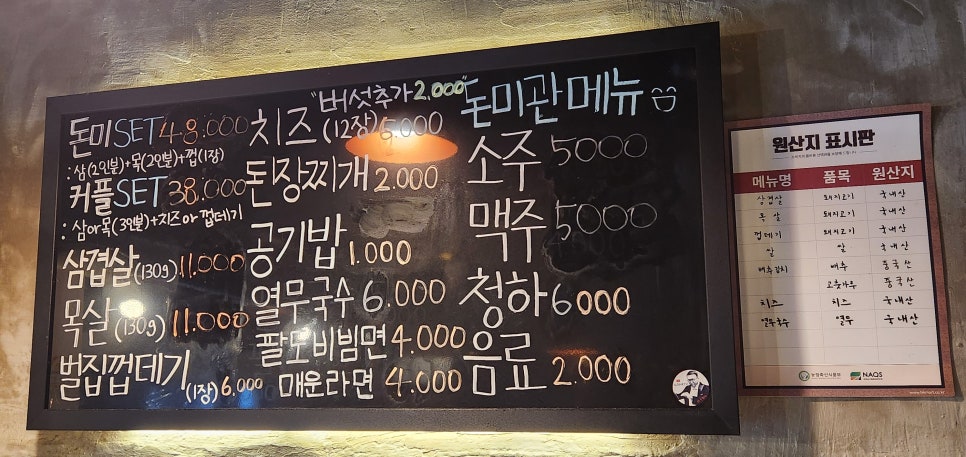 돈미SET 48.000
: 삼(2인분)+목(2인분)+껍(1장)
커플SET 38.000
: 삼or목(3인분)+치즈or껍데기
삼겹살(130g) 11.000
목살(130g) 11.000
벌집껍데기(1장) 6.000
"버섯추가 2.000"
치즈(12장) 5.000
된장찌개 2.000
공기밥 1.000
열무국수 6.000
팔도비빔면 4.000
매운라면 4.000
돈미관 메뉴
소주 5000
맥주 5000
청하 6000
음료 2.000
원산지 표시판
메뉴명 품목 원산지
삼겹살 돼지고기 국내산
목살 돼지고기 국내산
껍데기 돼지고기 국내산
쌀 쌀 국내산
배추김치 배추 중국산
고춧가루 중국산
치즈 치즈 국내산
열무국수 열무 국내산
농림축산식품부 NAQS